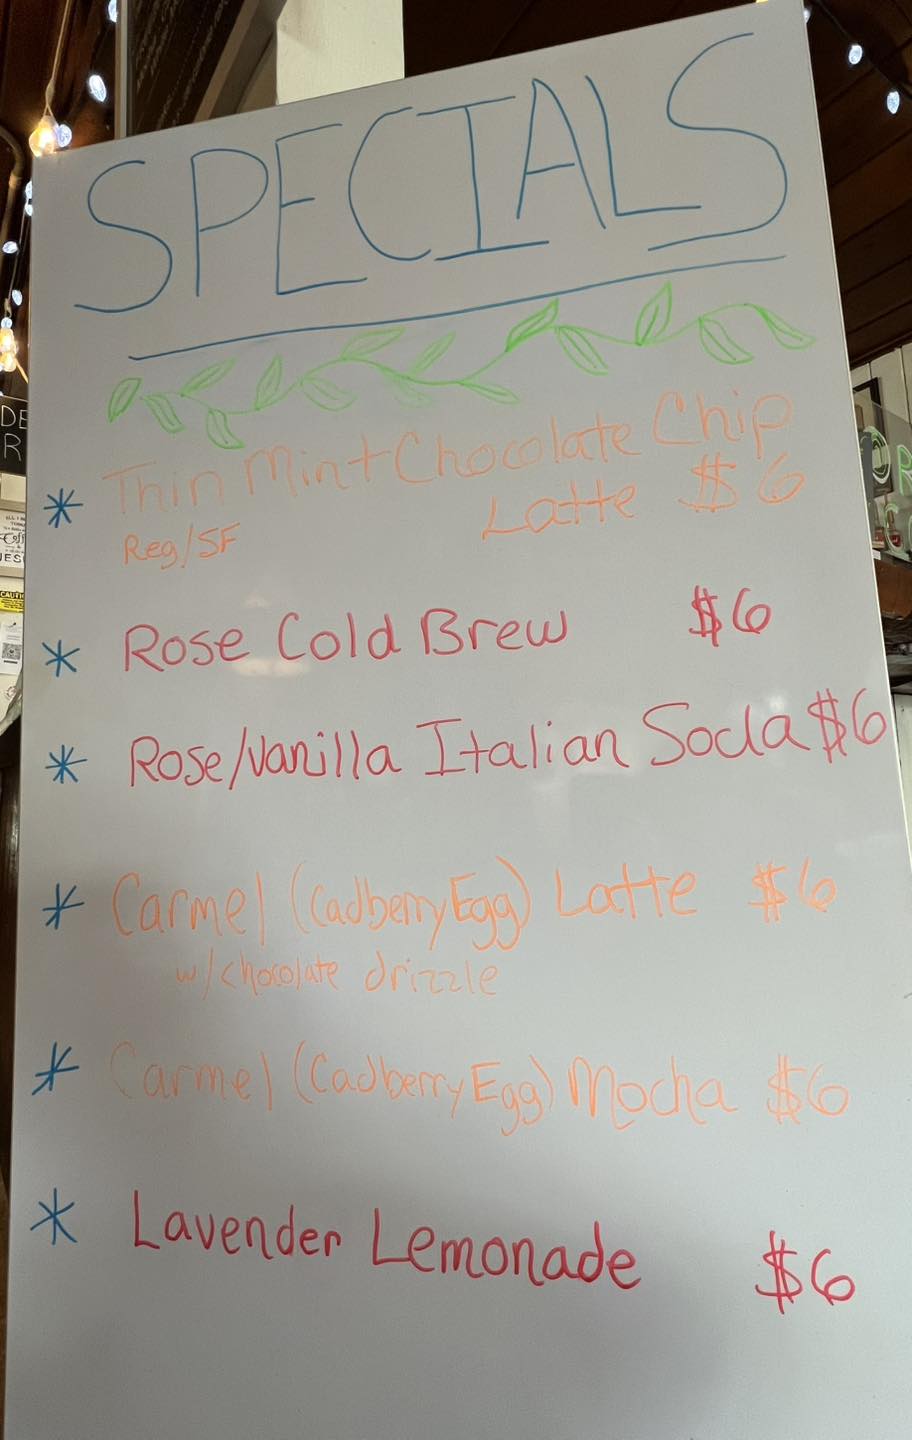 SPECIALS
* Thin Mint Chocolate Chip
Latte $6
Reg/SF
* Rose Cold Brew $6
* Rose/Vanilla Italian Soda $6
* Carmel (Cadberry Egg) Latte $6
w/chocolate drizzle
* Carmel (Cadberry Egg) Mocha $6
* Lavender Lemonade $6
DE
R
CAUTI
OR